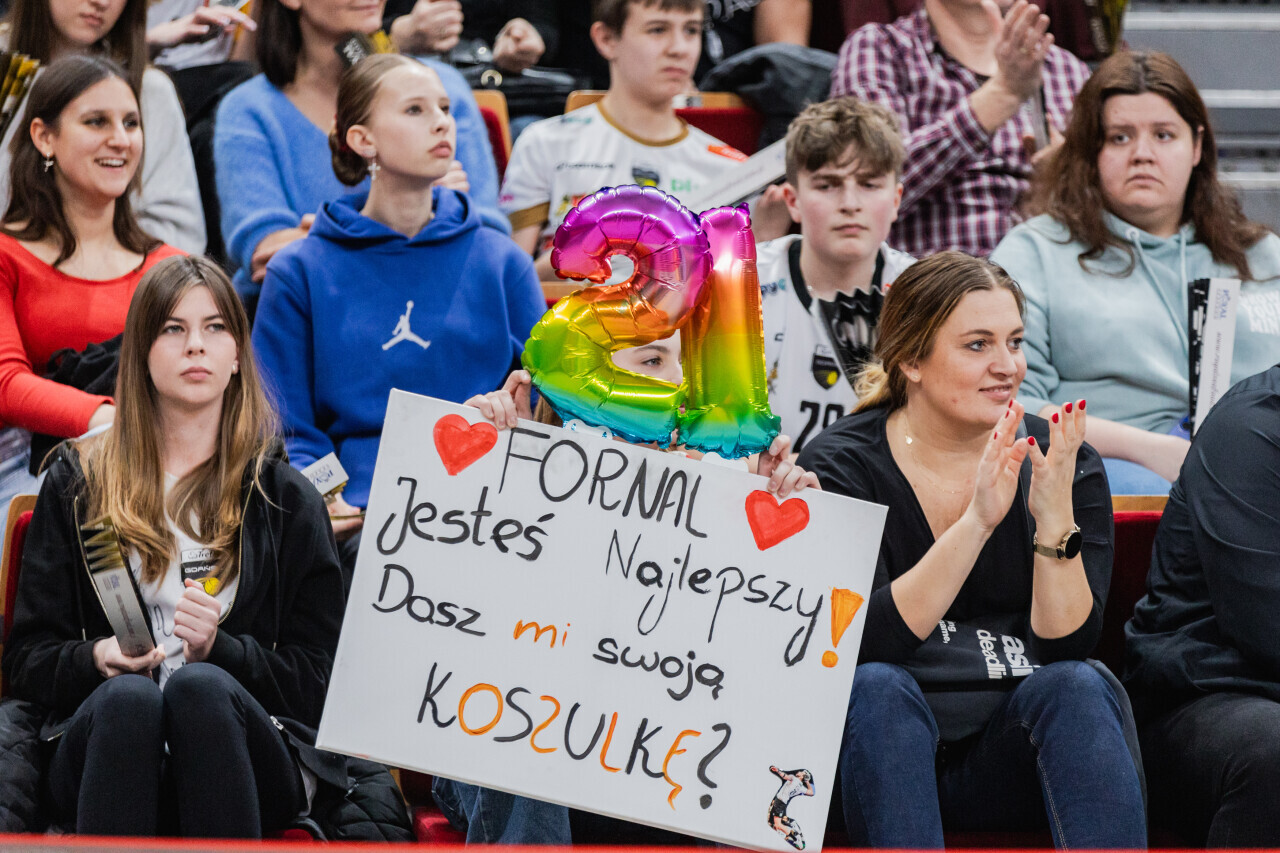 21
FORNAL
Jesteś Najlepszy!
Dasz mi swoją
KOSZULKĘ?
GDAŃSK
deadli